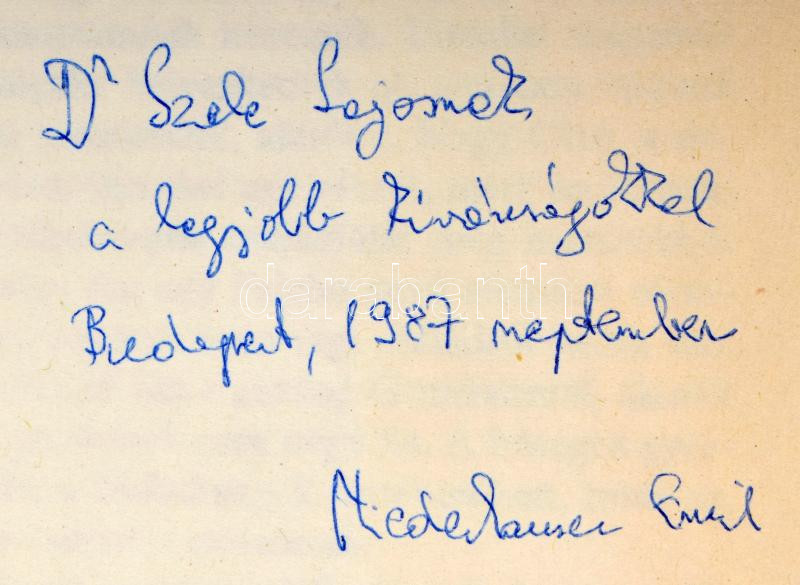 Dr Szele Lajosnak
a legjobb kívánságokkal
darabanth
Budapest, 1987 szeptember
Niederhauser Emil